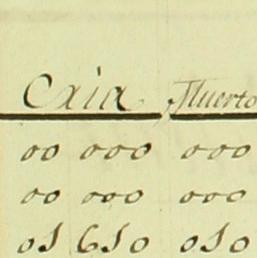 Caja Muerto
00 000 000
00 000 000
01 610 010